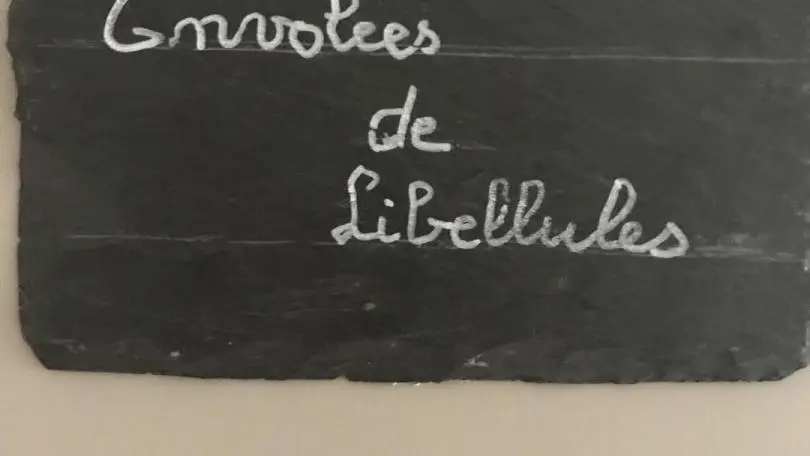 Envolées
de
Libellules